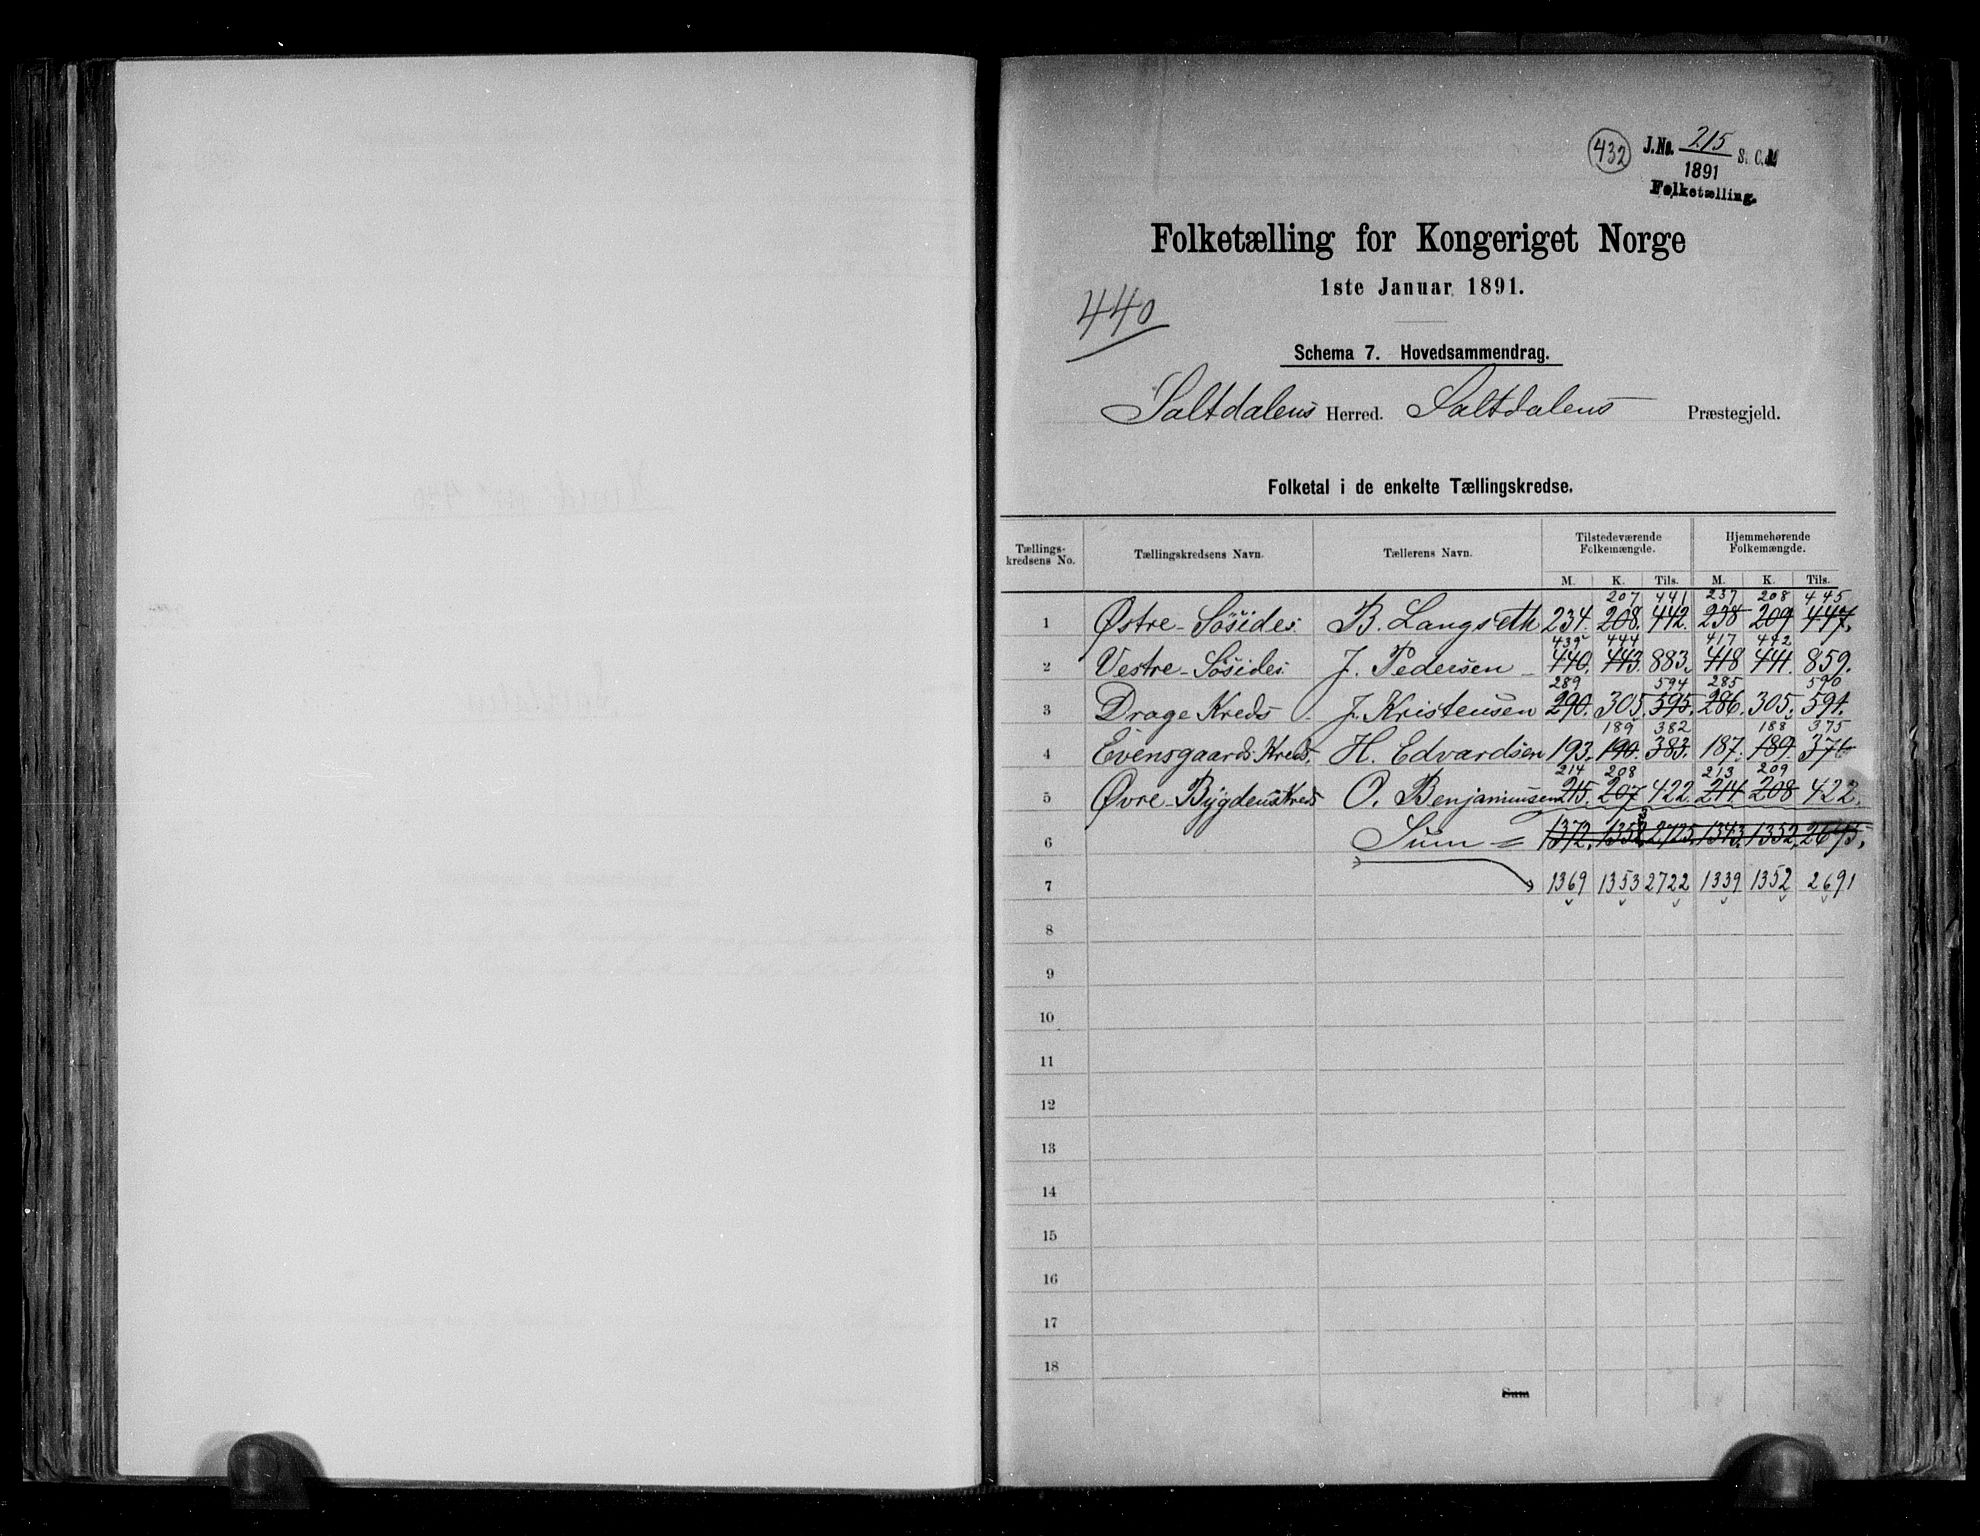 432 J.No. 215 S. C.
1891
Folketælling.
Folketælling for Kongeriget Norge
1ste Januar 1891.
440
Schema 7. Hovedsammendrag.
Saltdalens Herred. Saltdalens Præstegjeld.
Folketal i de enkelte Tællingskredse.
Tællings-kredsens No. Tællingskredsens Navn. Tællerens Navn. Tilstedeværende Folkemængde. Hjemmehørende Folkemængde.
M. K. Tils. M. K. Tils.
207 441 237 208 445
1 Østre-Søsides B. Langseth 234. 208. 442. 238 209 447.
439 444 417 442
2 Vestre-Søsides J. Pedersen 440. 443. 883. 418 441. 859.
289 594 285 590
3 Drage Kreds J. Kristensen 290. 305. 595. 286. 305. 591.
189 382 188 375
4 Evensgaards Kreds. H. Edvardsen 193. 190. 383. 187. 189. 376
214 208 213 209
5 Øvre-Bygdens Kreds O. Benjaminsen 215. 207 422. 214 208 422.
6 Sum = 1372. 1353. 2725. 1343. 1352. 2695.
7 1369 1353 2722 1339 1352 2691
8
9
10
11
12
13
14
15
16
17
18
Sum